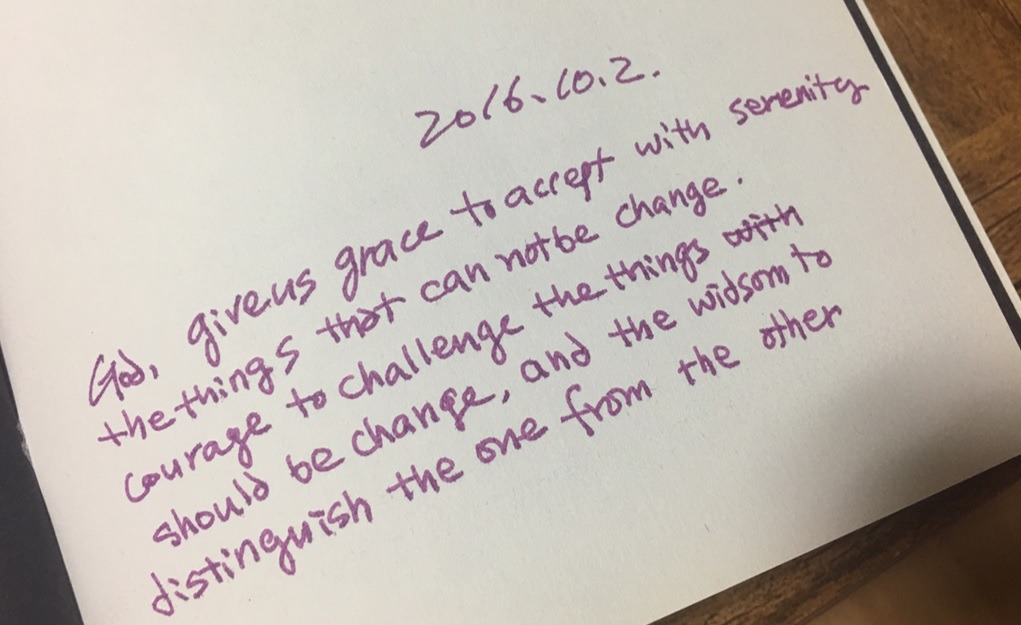 2016.10.2.
God, give us grace to accept with serenity
the things that can not be change.
courage to challenge the things with
should be change, and the widsom to
distinguish the one from the other